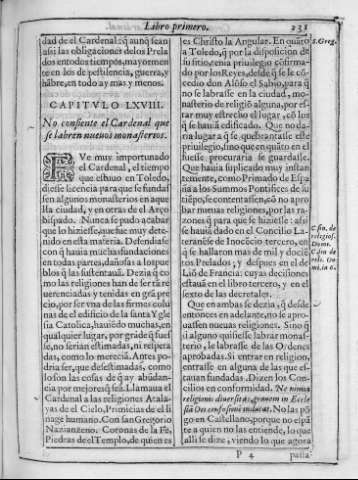 Libro primero.
231
dad de el Cardenal: q̃ aunq̃ sean
assi: las obligaciones de los Prela
dos en todos tiempos, mayormen
te en los de pestilencia, guerra, y
hãbre, en todo ay mas y menos.
CAPITVLO LXVIII.
No consiente el Cardenal que
se labren nueuos monasterios.
FVe muy importunado
el Cardenal, el tiempo
que estuo en Toledo,
diesse licencia para que se fundas
sen algunos monasterios en aque
lla ciudad, y en otras de el Arço
bispado. Nunca se pudo acabar
que lo hiziesse, aunque muy dete-
nido en esta materia. Defendiase
con q̃ hauia muchas fundaciones
en todas partes, dañosas a los pue
blos q̃ las sustentauã. Dezia q̃ co
mo las religiones han de ser tã re
uerenciadas y tenidas en grã pre
cio, por ser vna de las firmes colu
nas de el edificio de la santa Ygle
sia Catolica, hauiẽdo muchas, en
qualquier lugar, por grãde q̃ fues
se, no serian estimadas, ni respeta
das, como lo merecia. Antes po-
dria ser, que desestimadas, como
lo son las cosas de q̃ ay abũdan-
cia por mejores q̃ seã. Llamaua el
Cardenal a las religiones Atala-
yas de el Cielo, Primicias de el li
nage humano. Con san Gregorio
Nazianzeno. Coronas de la Fê,
Piedras de el Templo, de quien es
es Christo la Angular. En quãto
a Toledo, q̃ por la disposicion de
su sitio, tenia priuilegio cõfirma-
do por los Reyes, desde q̃ se le cõ-
cedio don Alõso el Sabio, para q̃
no se labrasse en la ciudad, mo-
nasterio de religiõ alguna, por es-
tar muy estrecho el lugar, cõ los
q̃ se hauiã edificado. Que no da-
ria lugar a q̃ se quebrantasse este
priuilegio, sino que en quãto en el
fuesse procuraria se guardasse.
Que hauia suplicado muy instan
temente, como Primado de Espa
ña a los Summos Pontifices de su
tiẽpo, se contentassen, cõ no apro
bar nueuas religiones, por las ra-
zones q̃ para que se hiziesse: assi
se hauiã dado en el Concilio La-
teranẽse de Inocẽcio tercero, en
q̃ se hallaron mas de mil y docie
tos Prelados, y despues en el de
Liõ de Francia: cuyas decisiones
estauã en el libro tercero, y en el
sexto de las decretales.
Que en ambas se dezia, q̃ desde
entonces en adelante, no se apro-
uassen nueuas religiones. Sino q̃
si alguno quisiesse labrar monas-
terio, le labrasse de las Ordenes
aprobadas. Si entrar en religion,
entrasse en alguna de las que es-
tauan fundadas. Dizen los Con-
cilios en conformidad. Ne nimia
religionũ diuersitas, grauem in Eccle
sia Dei confusionẽ inducat. No las põ
go en Castellano, porque no espã
te a quien no las entiende, lo que
alli se dize, viendo lo que agora
S. Greg.
C. fin. de
religios.
Domi.
C. fin de
relig. Do
mi. in 6.
P 4
passa